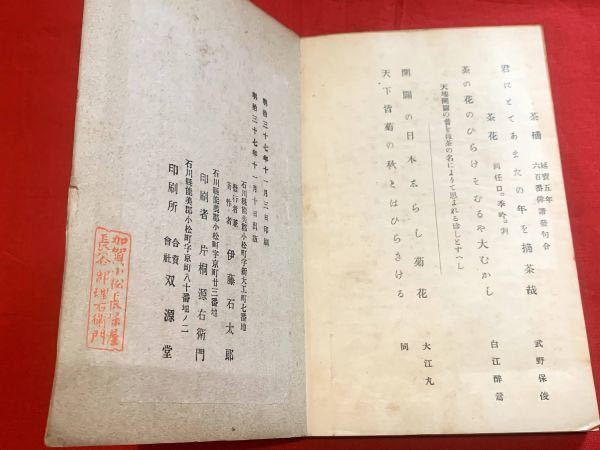 茶摘 延寳五年
六百番俳諧發句合
君にとてあまたの年を摘茶哉 武野保俊
茶花 両任口。季吟。判
茶の花のひらけそむるや大むかし 白江醉鶯
天地開闢の昔を抹茶の名によりて思よれる珍しとすへし
開闢の日本ゑらし菊花 大江丸
天下皆菊の秋とはひらきける 同
明治三十七年十一月三日印刷
明治三十七年十一月十日出版
石川縣能美郡小松町字新大工町七番地
發行者兼著作者 伊藤石太郎
石川縣能美郡小松町字京町廿三番地
印刷者 片桐源右衛門
石川縣能美郡小松町字京町八十番地ノ二
印刷所 合資會社 双源堂
加賀小松長保屋
長谷部理右衛門